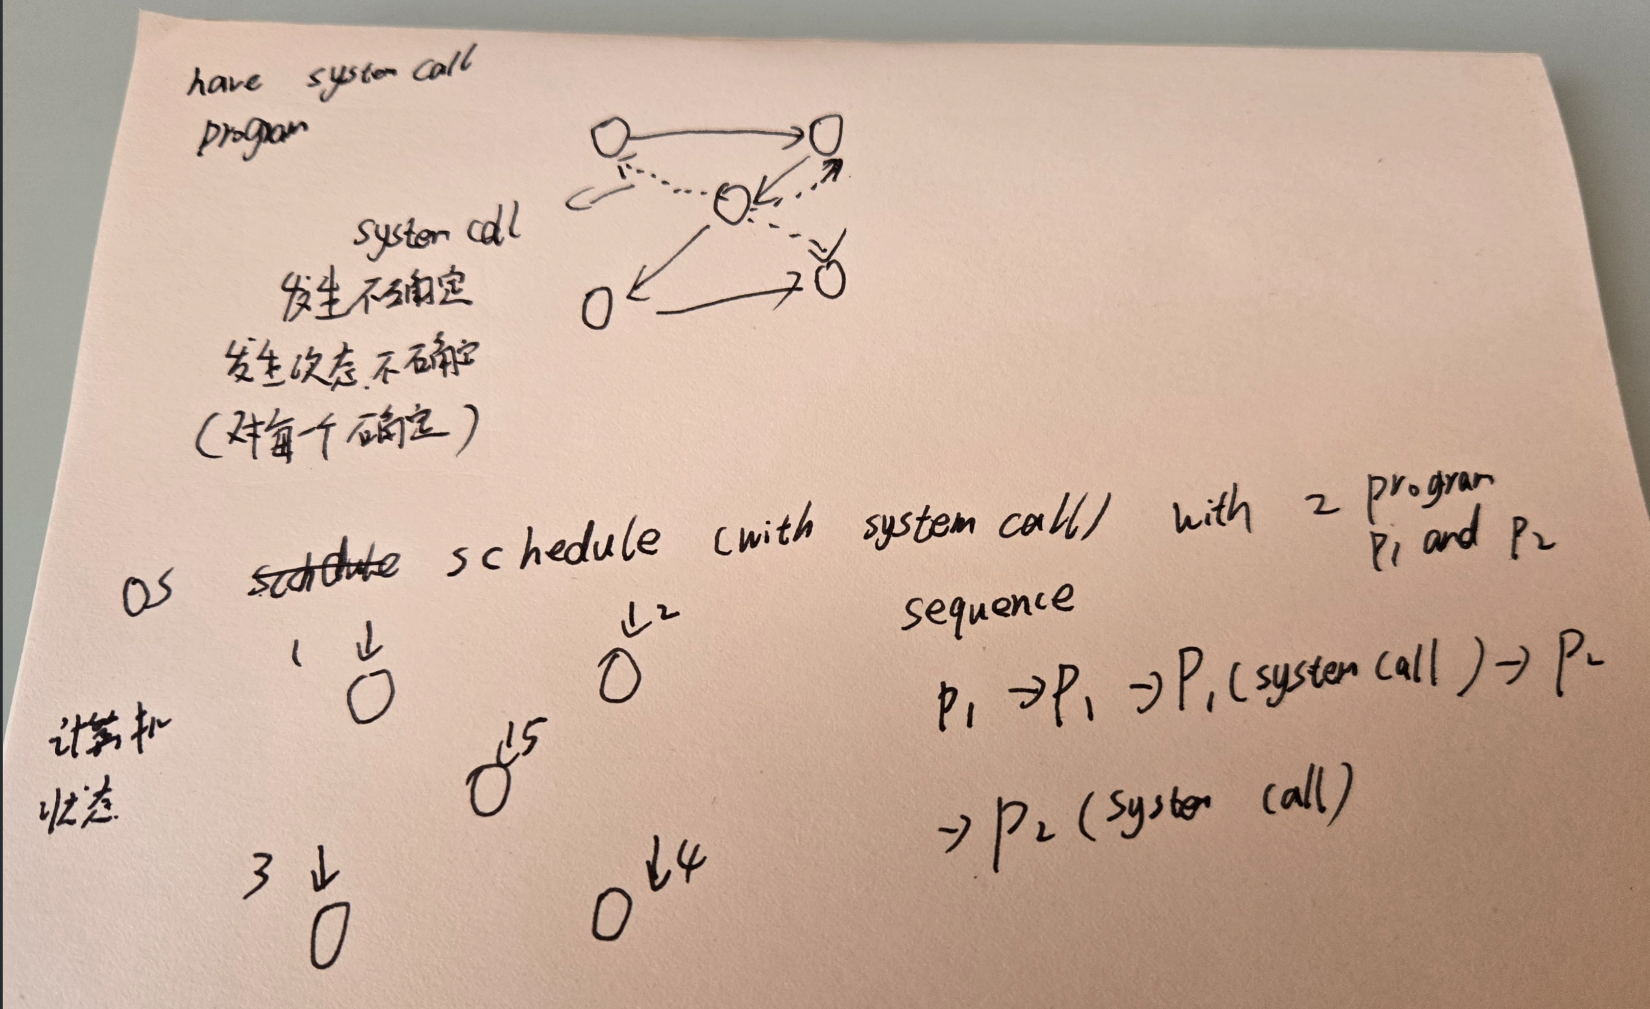 have system call
program
system call
发生不确定
发生次态不确定
(对每一个确定)
OS schedule (with system call) with 2 program
P1 and P2
1
2
sequence
计算机
状态
5
P1 → P1 → P1 (system call) → P2
→ P2 (system call)
3
4